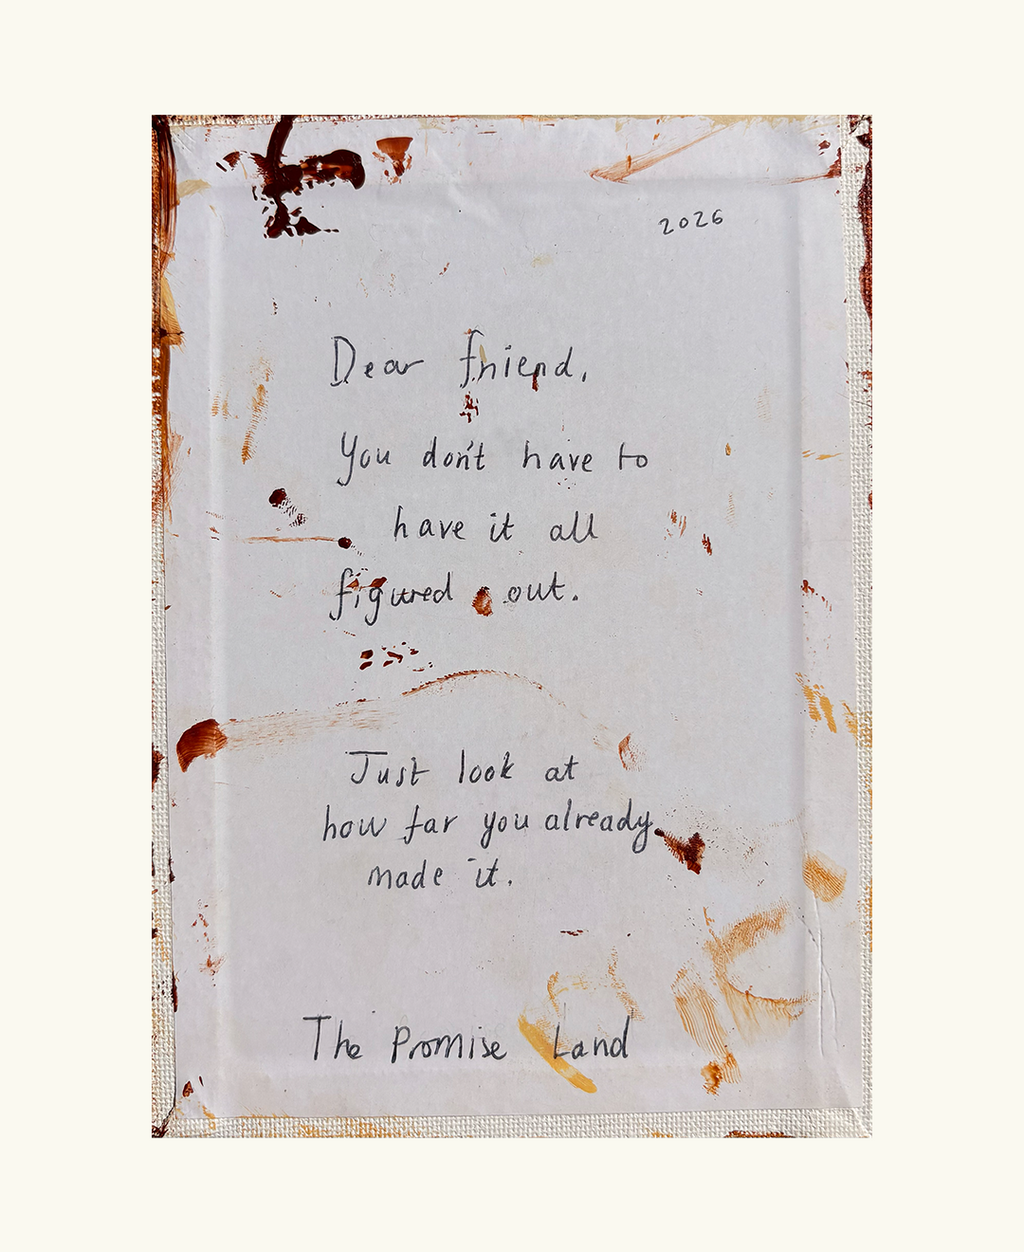 2026
Dear friend,
You don't have to
have it all
figured out.
Just look at
how far you already
made it.
The Promise Land